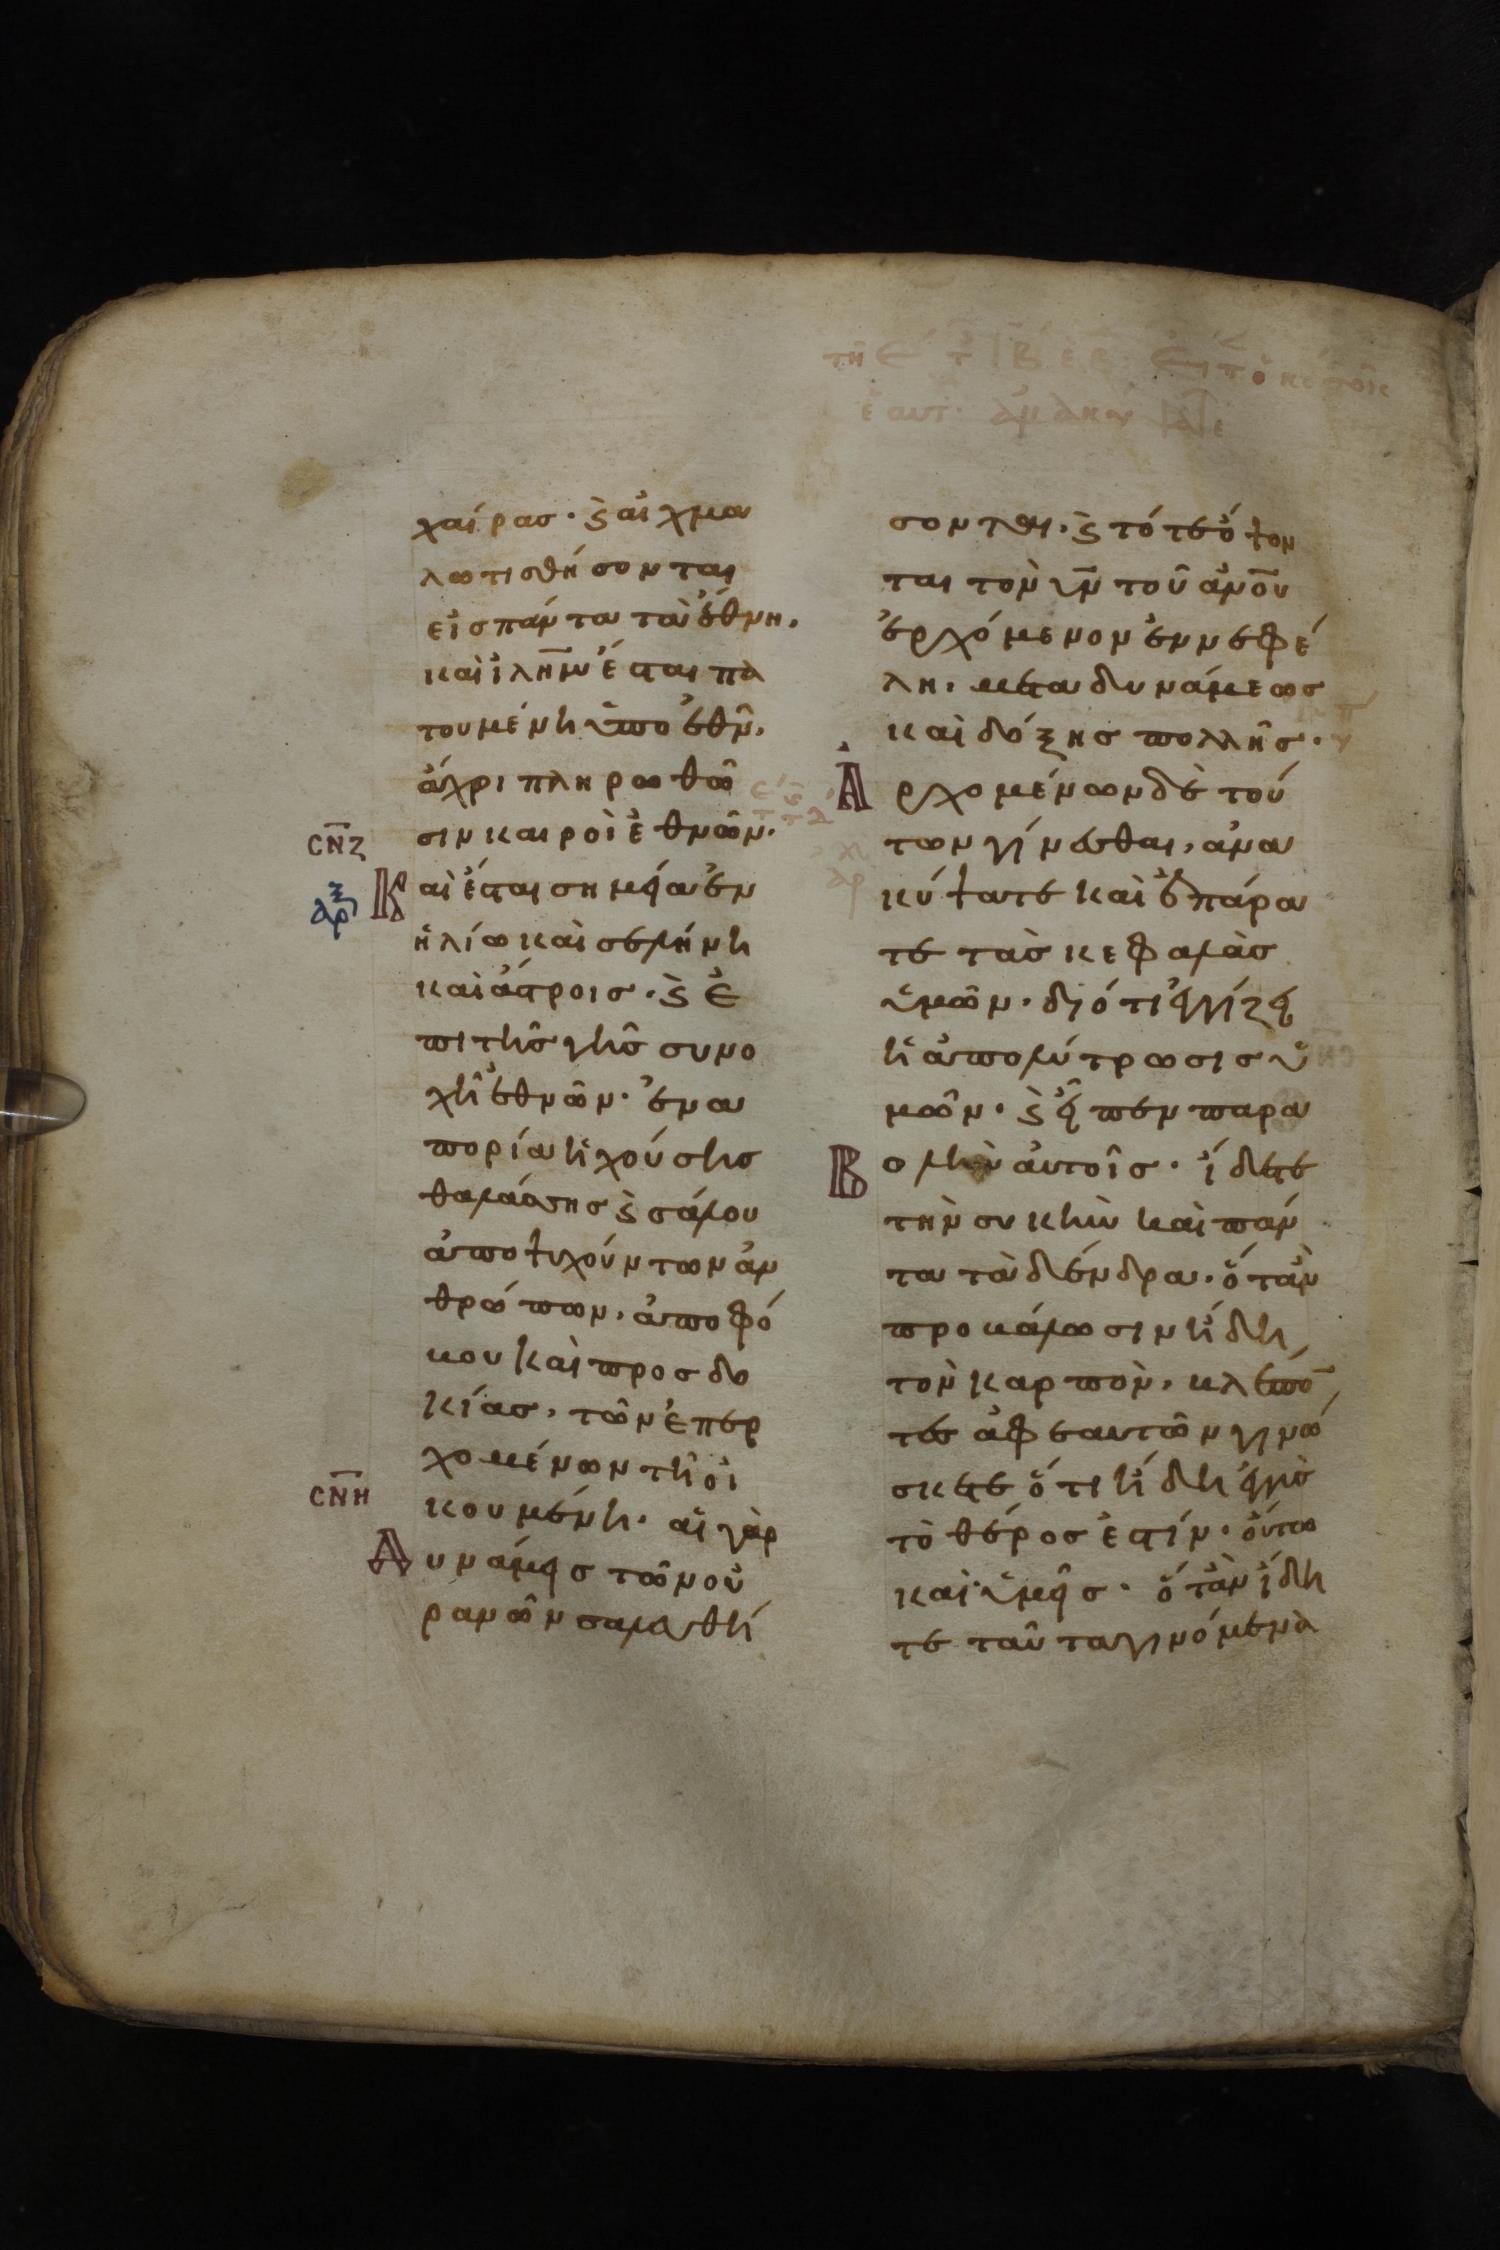 χαίρας· ϗ αἰχμα
λωτισθήσονται
εἰς πάντα τὰ ἔθνη,
καὶ ἰλη̅μ ἔσται πα
τουμένη ὑπο ἐθν̑,
ἄχρι πληρωθῶ
σιν καιροὶ ἐθνῶν·
σ̅ν̅ζ
Και ἔσται σημεῖα ἐν
ἡλίω καὶ σελήνη
καὶ ἄστροις· ϗ ἐ
πι τῆς γῆς συνο
χῆ ἐθνῶν· ἐν α
πορία ἠχούσης
θαλάσσης ϗ σάλου
ἀποψυχούντων ἀν
θρώπων, ἀπο φό
βου καὶ προσδο
κίας, τῶν ἐπερ
χομένων τῆ οἰ
κουμένη· αἱ γὰρ
σ̅ν̅η
Δυνάμεις τῶν οὐ
ρανῶν σαλευθή
σονται· ϗ τότε ὄψον
ται τὸν υ̅ν τοῦ ἀν̅ου
ἐρχόμενον ἐν νεφέ
λη, μετα δυνάμεως
καὶ δόξης πολλῆς·
Ἀρχομένων δὲ τού
των γίνεσθαι, ἀνα
κύψατε καὶ ἐπάρα
τε τὰς κεφαλὰς
ὑμῶν· διότι ἐγγίζει
ἡ ἀπολύτρωσις ὑ
μῶν· ϗ εἶπεν παρα
Βολὴν ἀυτοῖς· ἴδετε
τὴν συκὴν καὶ πάν
τα τὰ δένδρα· ὅταν
προβάλωσιν ἤδη
τὸν καρπὸν, βλέπο̅
τες ἀφ εαυτῶν γινώ
σκετε ὅτι ἤδη ἐγγὺς
τὸ θέρος ἐστίν· ὅυτω
καὶ ὑμεῖς· ὅταν ἴδη
τε ταῦτα γινόμενα